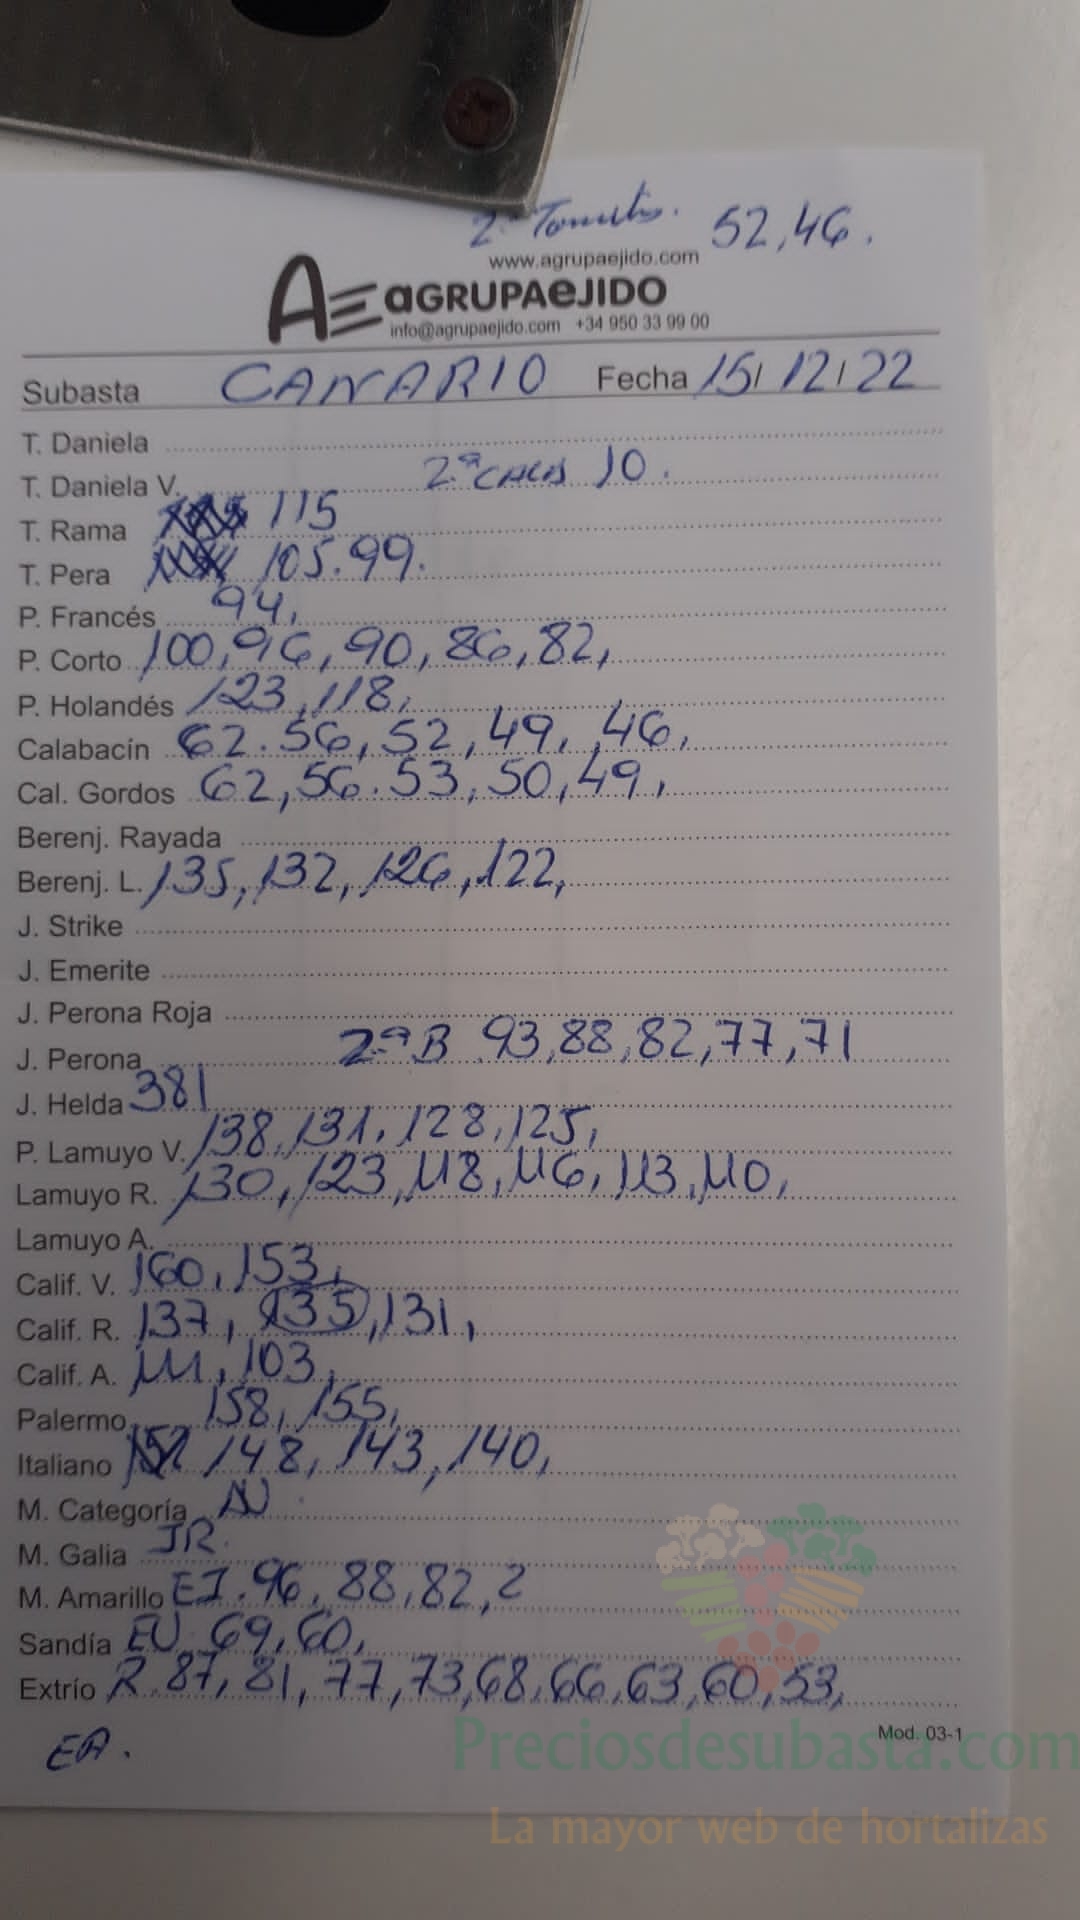 2ª Tomates. 52,46.
www.agrupaejido.com
AE aGRUPAeJIDO
info@agrupaejido.com +34 950 33 99 00
Subasta CANARIO Fecha 15/ 12/ 22
T. Daniela
T. Daniela V. 2ª CALAB 10.
T. Rama 115
T. Pera 105.99.
P. Francés 94,
P. Corto 100,96,90,86,82,
P. Holandés 123,118,
Calabacín 62.56,52,49,46,
Cal. Gordos 62,56.53,50,49,
Berenj. Rayada
Berenj. L. 135,132,126,122,
J. Strike
J. Emerite
J. Perona Roja
J. Perona 2ª B 93,88,82,77,71
J. Helda 381
P. Lamuyo V. 138,131,128,125,
Lamuyo R. 130,123,118,116,113,110,
Lamuyo A.
Calif. V. 160,153,
Calif. R. 137,135,131,
Calif. A. 111,103,
Palermo 158,155,
Italiano 152 148,143,140,
M. Categoría
M. Galia JR.
M. Amarillo EJ.96,88,82,2
Sandía EV 69,60,
Extrío R.87,81,77,73,68,66,63,60,53,
EA.
Mod. 03-1
Preciosdesubasta.com
La mayor web de hortalizas